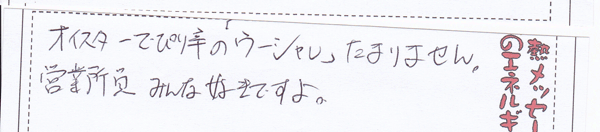 オイスターでぴり辛の「ウーシャン」たまりません。
営業所員みんな好きですよ。
熱メッセー
のエネルギ